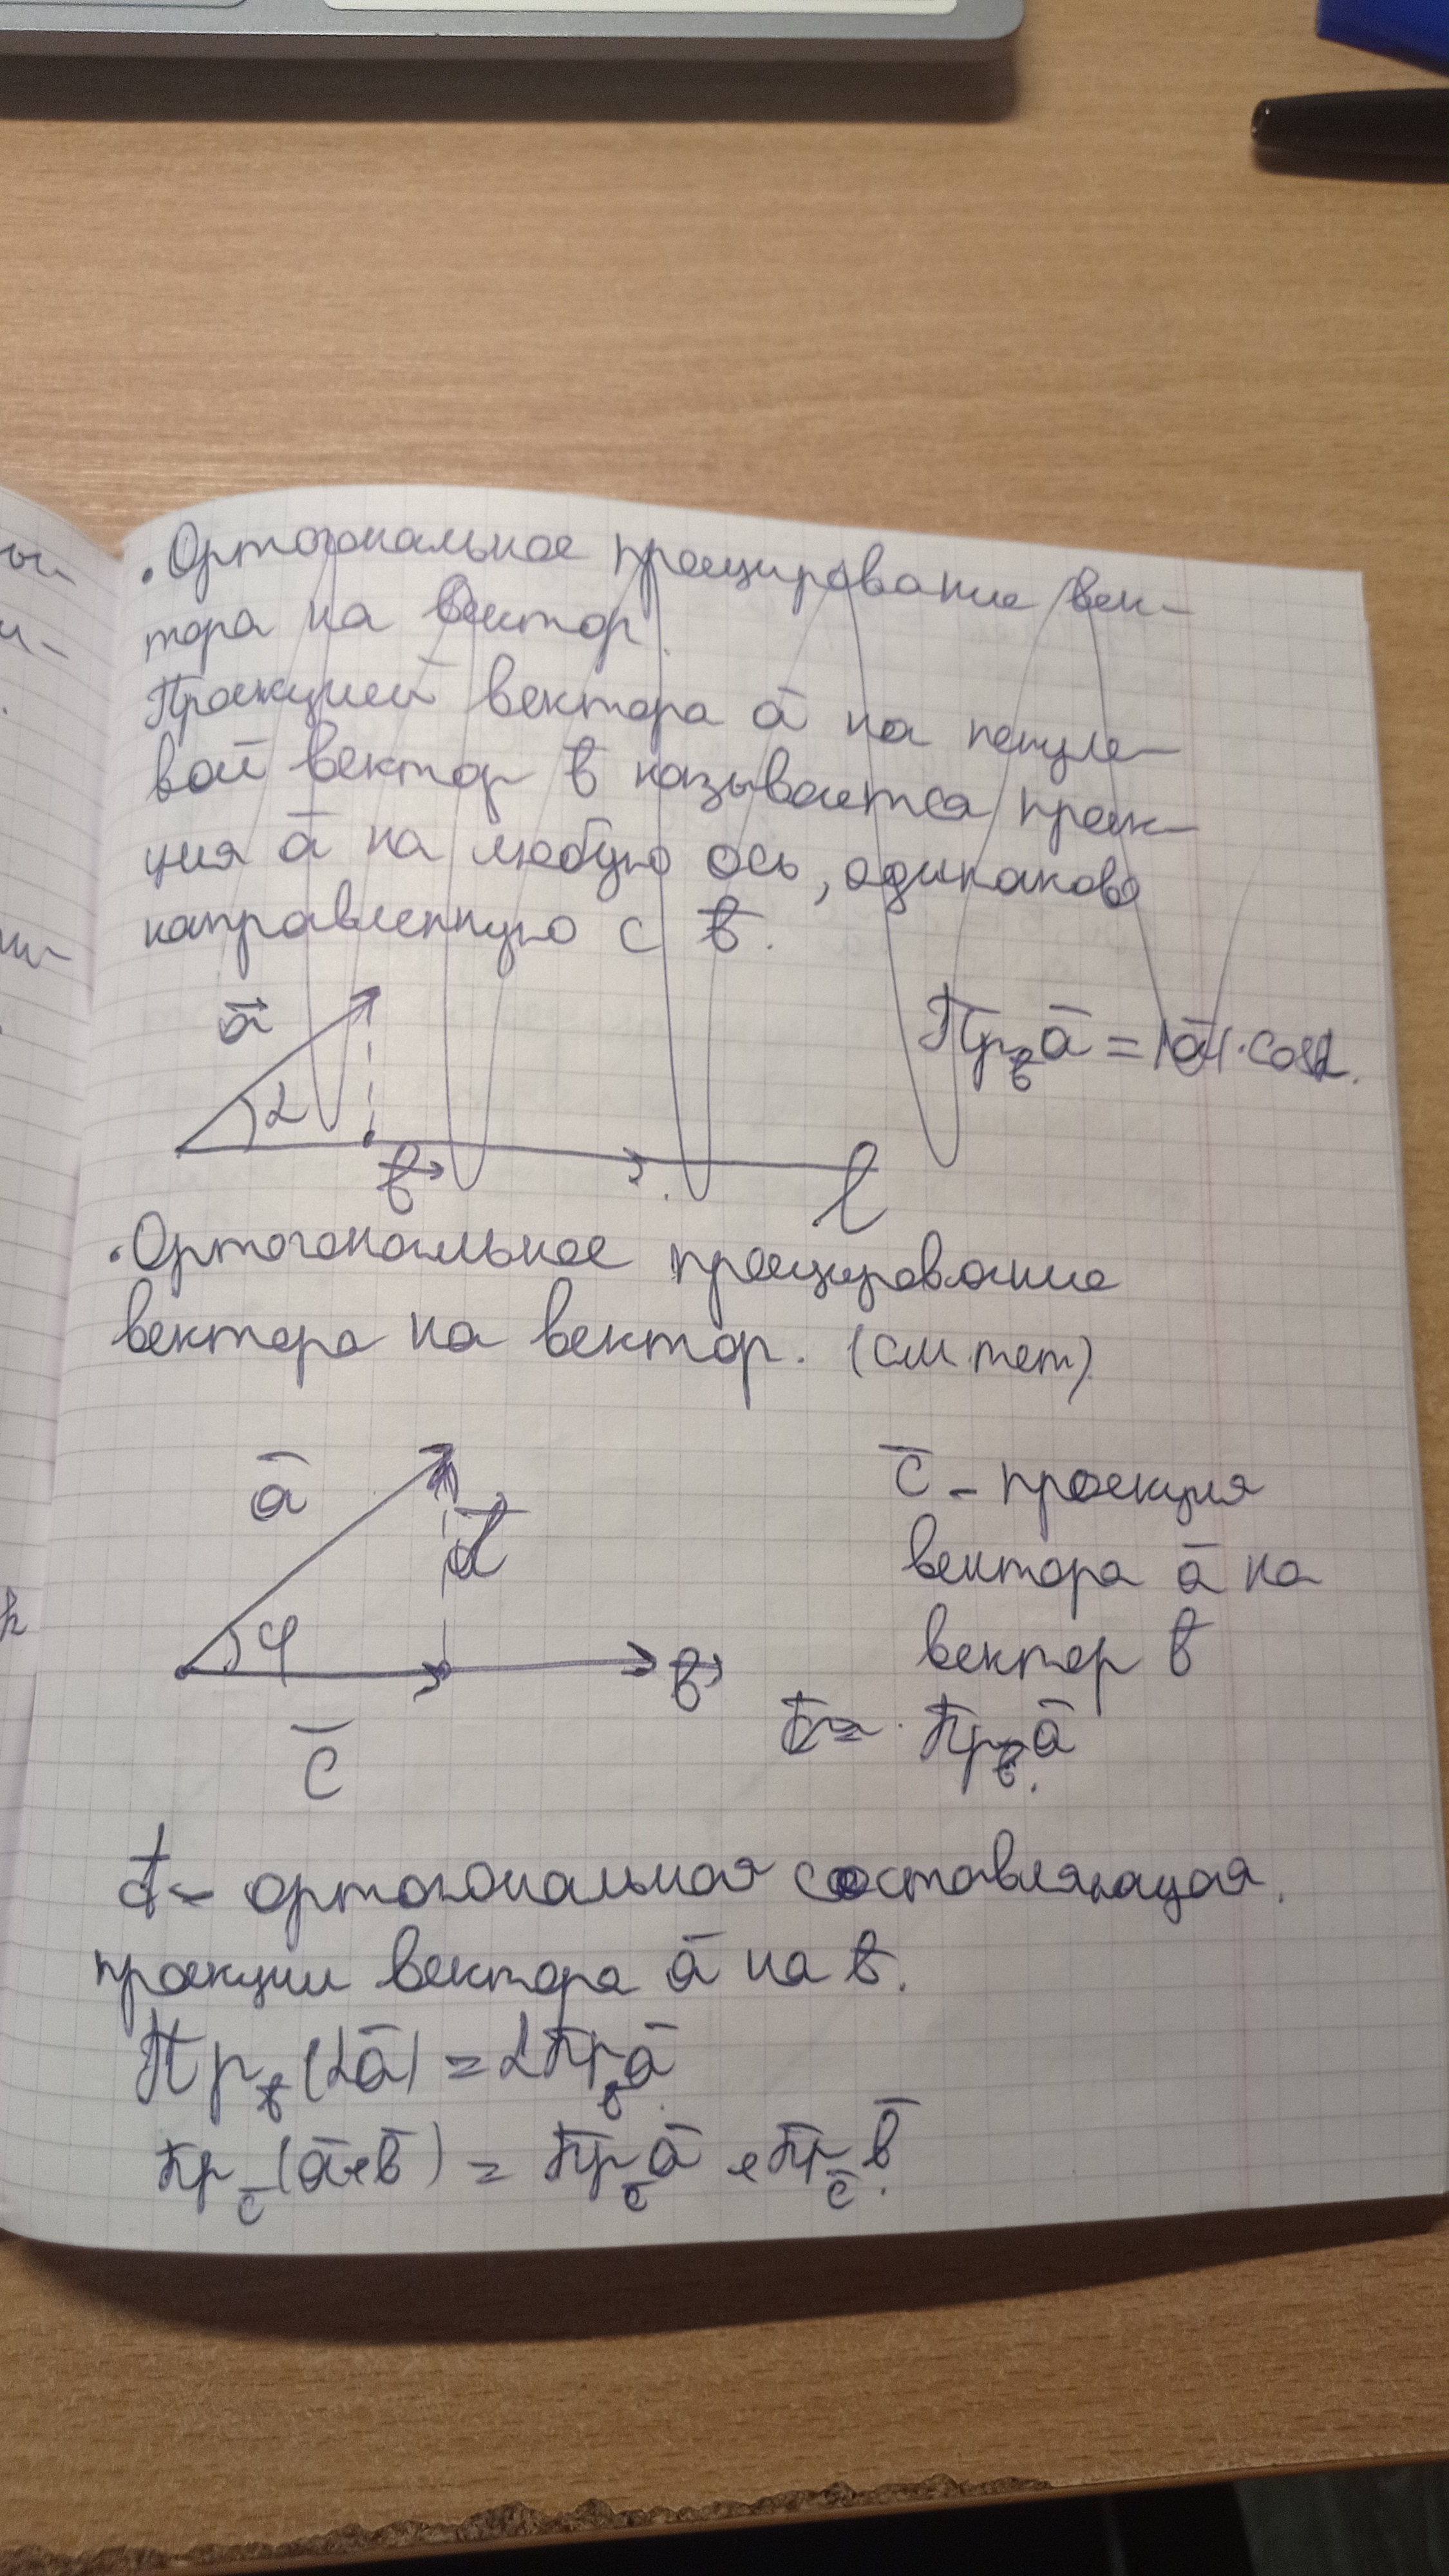 . Ортогональное проецирование век-
тора на вектор.
Проекцией вектора a̅ на нснуле-
вой вектор b̅ называется проек-
ция a̅ на любую ось, одинаково
направленную с b̅.
a⃗
Пр_b̅ a̅ = |a̅|·cosα.
α
b⃗
l
. Ортогональное проецирование
вектора на вектор. (см. тет)
a̅
d̅
φ
b⃗
c̅
c̅ - проекция
вектора a̅ на
вектор b̅
c̅ = Пр_b̅ a̅
d̅ - ортогональная составляющая.
проекции вектора a̅ на b̅.
Пр_b̅ (αa̅) = αПр_b̅ a̅.
Пр_c̅ (a̅+b̅) = Пр_c̅ a̅ + Пр_c̅ b̅.